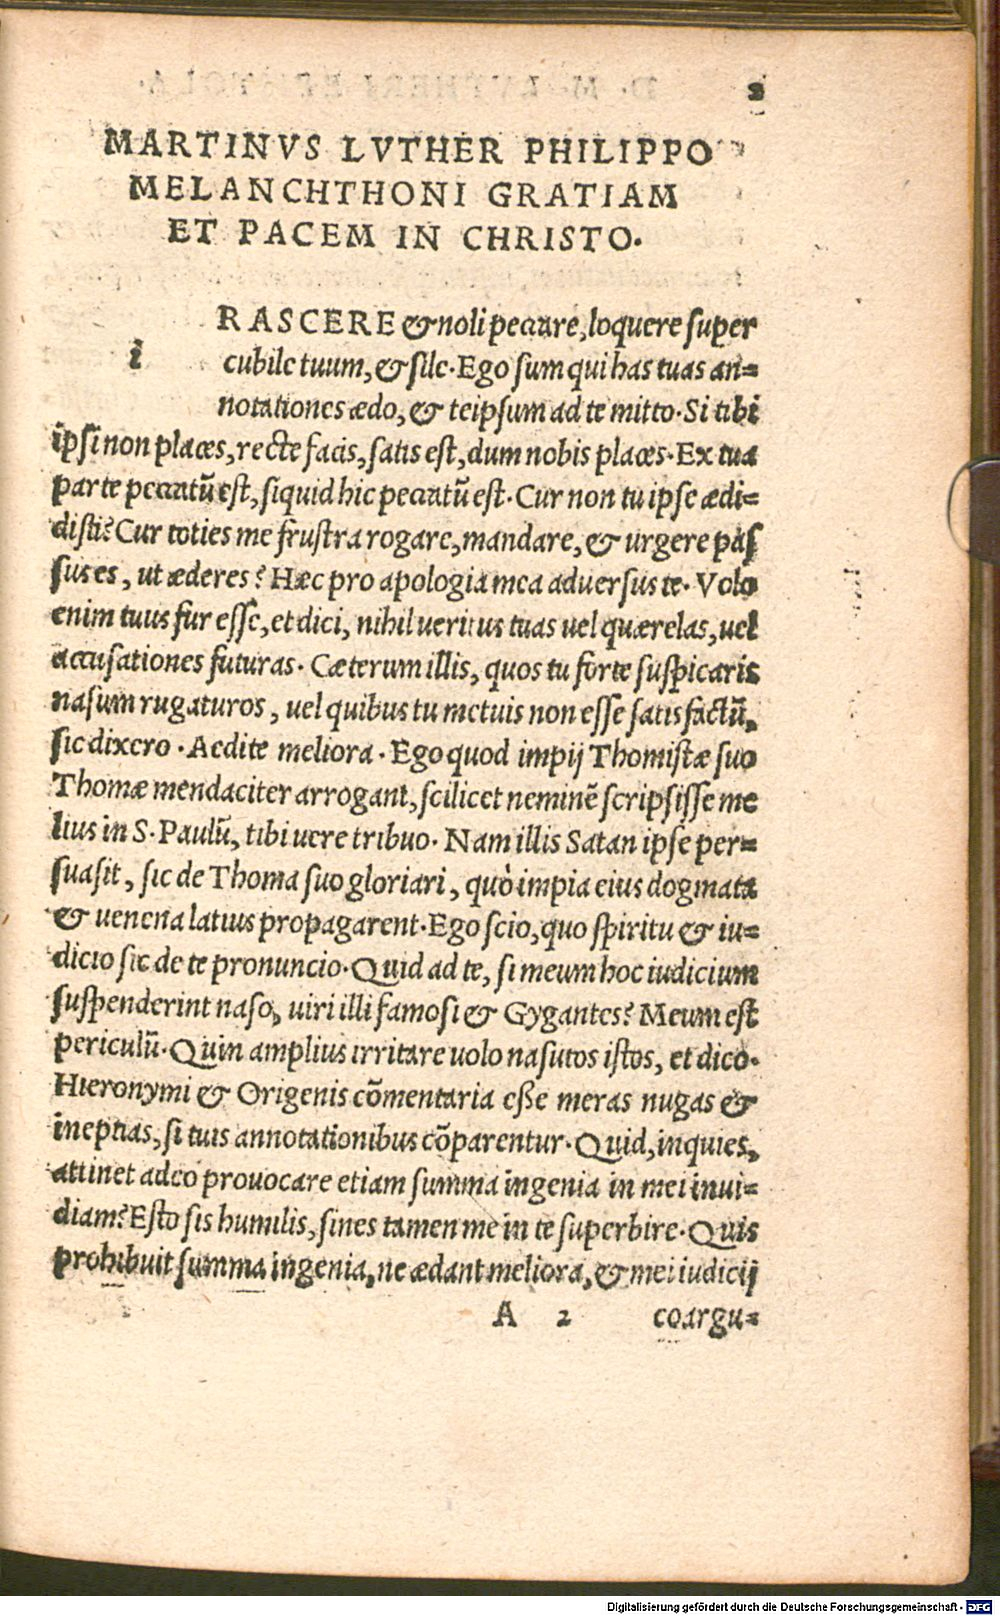 2
MARTINVS LVTHER PHILIPPO
MELANCHTHONI GRATIAM
ET PACEM IN CHRISTO.
i RASCERE & noli peccare, loquere super
cubile tuum, & sile. Ego sum qui has tuas an=
notationes ædo, & teipsum ad te mitto. Si tibi
ipsi non places, recte facis, satis est, dum nobis places. Ex tua
parte peccatū est, siquid hic peccatū est. Cur non tu ipse ædi=
disti? Cur toties me frustra rogare, mandare, & urgere pas
sus es, ut æderes? Hæc pro apologia mea aduersus te. Volo
enim tuus fur esse, et dici, nihil ueritus tuas uel quærelas, uel
accusationes futuras. Cæterum illis, quos tu forte suspicaris
nasum rugaturos, uel quibus tu metuis non esse satis factū,
sic dixero. Aedite meliora. Ego quod impij Thomistæ suo
Thomæ mendaciter arrogant, scilicet neminē scripsisse me
lius in S. Paulū, tibi uere tribuo. Nam illis Satan ipse per=
suasit, sic de Thoma suo gloriari, quò impia eius dogmata
& uenena latius propagarent. Ego scio, quo spiritu & iu=
dicio sic de te pronuncio. Quid ad te, si meum hoc iudicium
suspenderint naso, uiri illi famosi & Gygantes? Meum est
periculū. Quin amplius irritare uolo nasutos istos, et dico.
Hieronymi & Origenis cōmentaria esse meras nugas &
ineptias, si tuis annotationibus cōparentur. Quid, inquies,
attinet adeo prouocare etiam summa ingenia in mei inui=
diam? Esto sis humilis, sines tamen me in te superbire. Quis
prohibuit summa ingenia, ne ædant meliora, & mei iudicij
A 2 coargu=
Digitalisierung gefördert durch die Deutsche Forschungsgemeinschaft - DFG